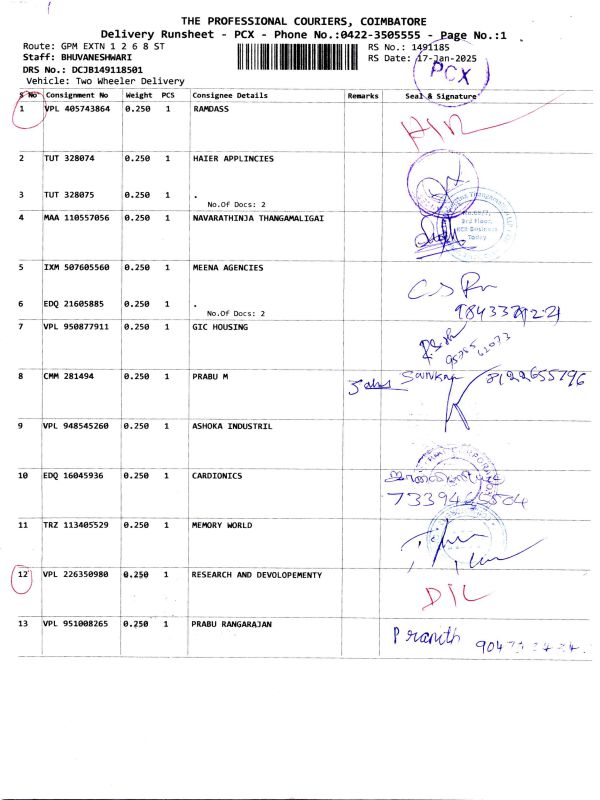 THE PROFESSIONAL COURIERS, COIMBATORE
Delivery Runsheet - PCX - Phone No.:0422-3505555 - Page No.:1
Route: GPM EXTN 1 2 6 8 ST RS No.: 1491185
Staff: BHUVANESHWARI RS Date: 17-Jan-2025
DRS No.: DCJB149118501 PCX
Vehicle: Two Wheeler Delivery
S No Consignment No Weight PCS Consignee Details Remarks Seal & Signature
1 VPL 405743864 0.250 1 RAMDASS
2 TUT 328074 0.250 1 HAIER APPLINCIES
3 TUT 328075 0.250 1 .
No.Of Docs: 2
4 MAA 110557056 0.250 1 NAVARATHINJA THANGAMALIGAI
3rd Floor,
KCR Business
Today
5 IXM 507605560 0.250 1 MEENA AGENCIES
6 EDQ 21605885 0.250 1 .
No.Of Docs: 2
7 VPL 950877911 0.250 1 GIC HOUSING
8 CMM 281494 0.250 1 PRABU M 8122655796
9 VPL 948545260 0.250 1 ASHOKA INDUSTRIL
10 EDQ 16045936 0.250 1 CARDIONICS
11 TRZ 113405529 0.250 1 MEMORY WORLD
12 VPL 226350980 0.250 1 RESEARCH AND DEVOLOPEMENTY D/L
13 VPL 951008265 0.250 1 PRABU RANGARAJAN Pranith